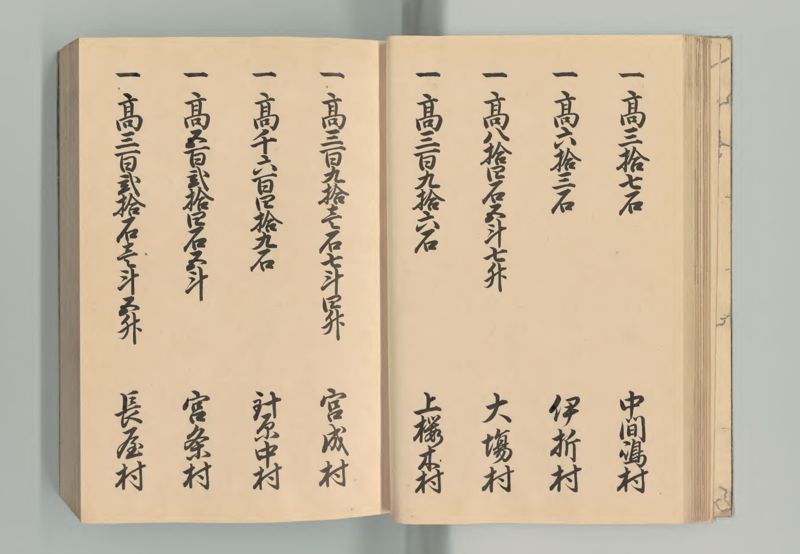 一 高三拾七石 中間嶋村
一 高六拾三石 伊折村
一 高八拾四石五斗七升 大塲村
一 高三百九拾六石 上櫻木村
一 高三百九拾壱石七斗四升 宮成村
一 高千六百四拾九石 計原中村
一 高五百弐拾四石五斗 宮条村
一 高三百弐拾石壱斗五升 長屋村